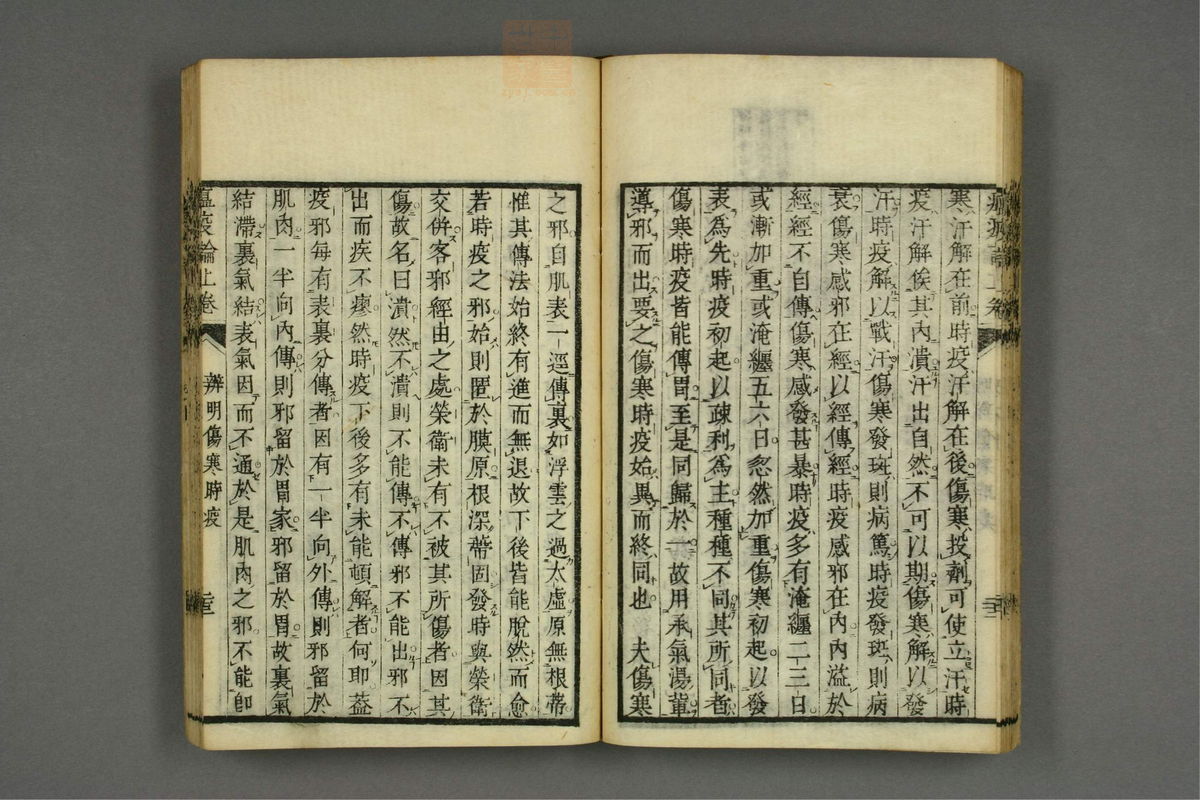 瘟疫論上卷
寒汗解在前時疫汗解在後傷寒投劑可使立汗時
疫汗解俟其內潰汗出自然不可以期傷寒解以發
汗時疫解以戰汗傷寒發斑則病篤時疫發斑則病
衰傷寒感邪在經以經傳經時疫感邪在內內溢於
經經不自傳傷寒感發甚暴時疫多有淹纏二三日
或漸加重或淹纏五六日忽然加重傷寒初起以發
表為先時疫初起以疎利為主種種不同其所同者
傷寒時疫皆能傳胃至是同歸於一故用承氣湯輩
導邪而出要之傷寒時疫始異而終同也 夫傷寒
之邪自肌表一逕傳裏如浮雲之過太虛原無根蒂
惟其傳法始終有進而無退故下後皆能脫然而愈
若時疫之邪始則匿於膜原根深蒂固發時與榮衛
交併客邪經由之處榮衛未有不被其所傷者因其
傷故名曰潰然不潰則不能傳不傳邪不能出邪不
出而疾不瘳然時疫下後多有未能頓解者何耶蓋
疫邪每有表裏分傳者因有一半向外傳則邪留於
肌肉一半向內傳則邪留於胃家邪留於胃故裏氣
結滯裏氣結表氣因而不通於是肌肉之邪不能即
瘟疫論上卷 辨明傷寒時疫